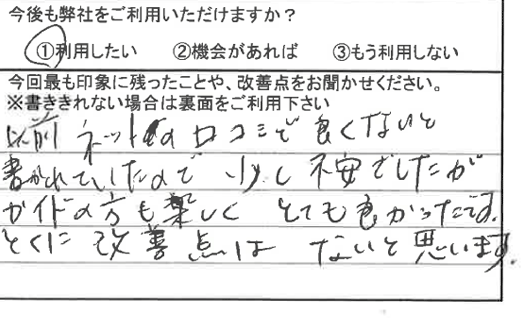 今後も弊社をご利用いただけますか？
①利用したい ②機会があれば ③もう利用しない
今回最も印象に残ったことや、改善点をお聞かせください。
※書ききれない場合は裏面をご利用下さい
以前 ネットの口コミで 良くないと
書かれていたので 少し 不安でしたが
ガイドの方も楽しく とても良かったです。
とくに 改善点は ないと思います。